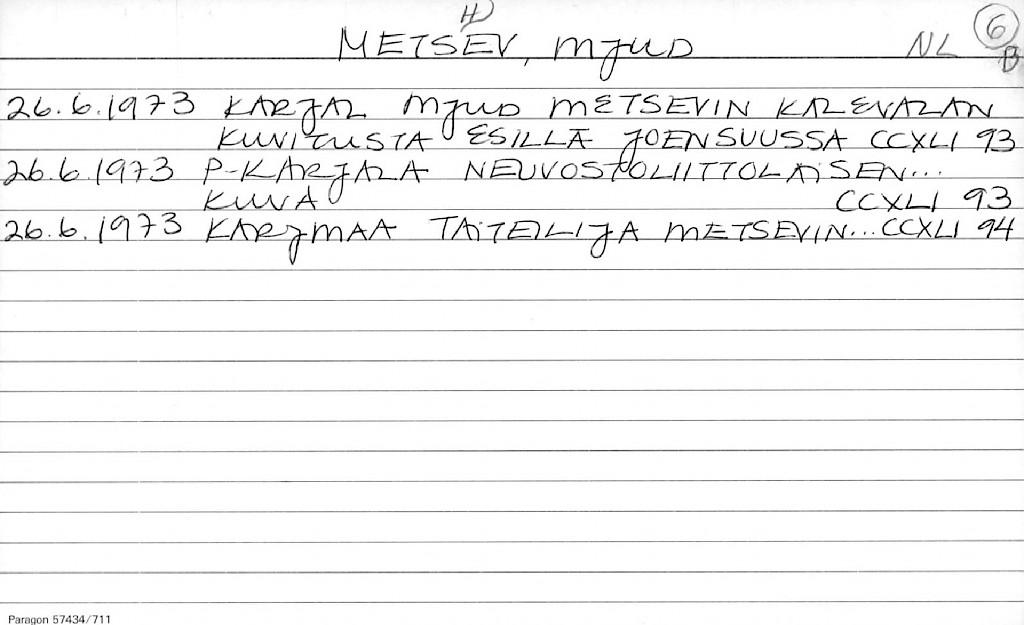 H
METSEV, MJUD NL 6
B
26.6.1973 KARJAL MJUD METSEVIN KALEVALAN
KUVITUSTA ESILLÄ JOENSUUSSA CCXLI 93
26.6.1973 P-KARJALA NEUVOSTOLIITTOLAISEN...
KUVA CCXLI 93
26.6.1973 KARJMAA TAITEILIJA METSEVIN... CCXLI 94
Paragon 57434/711